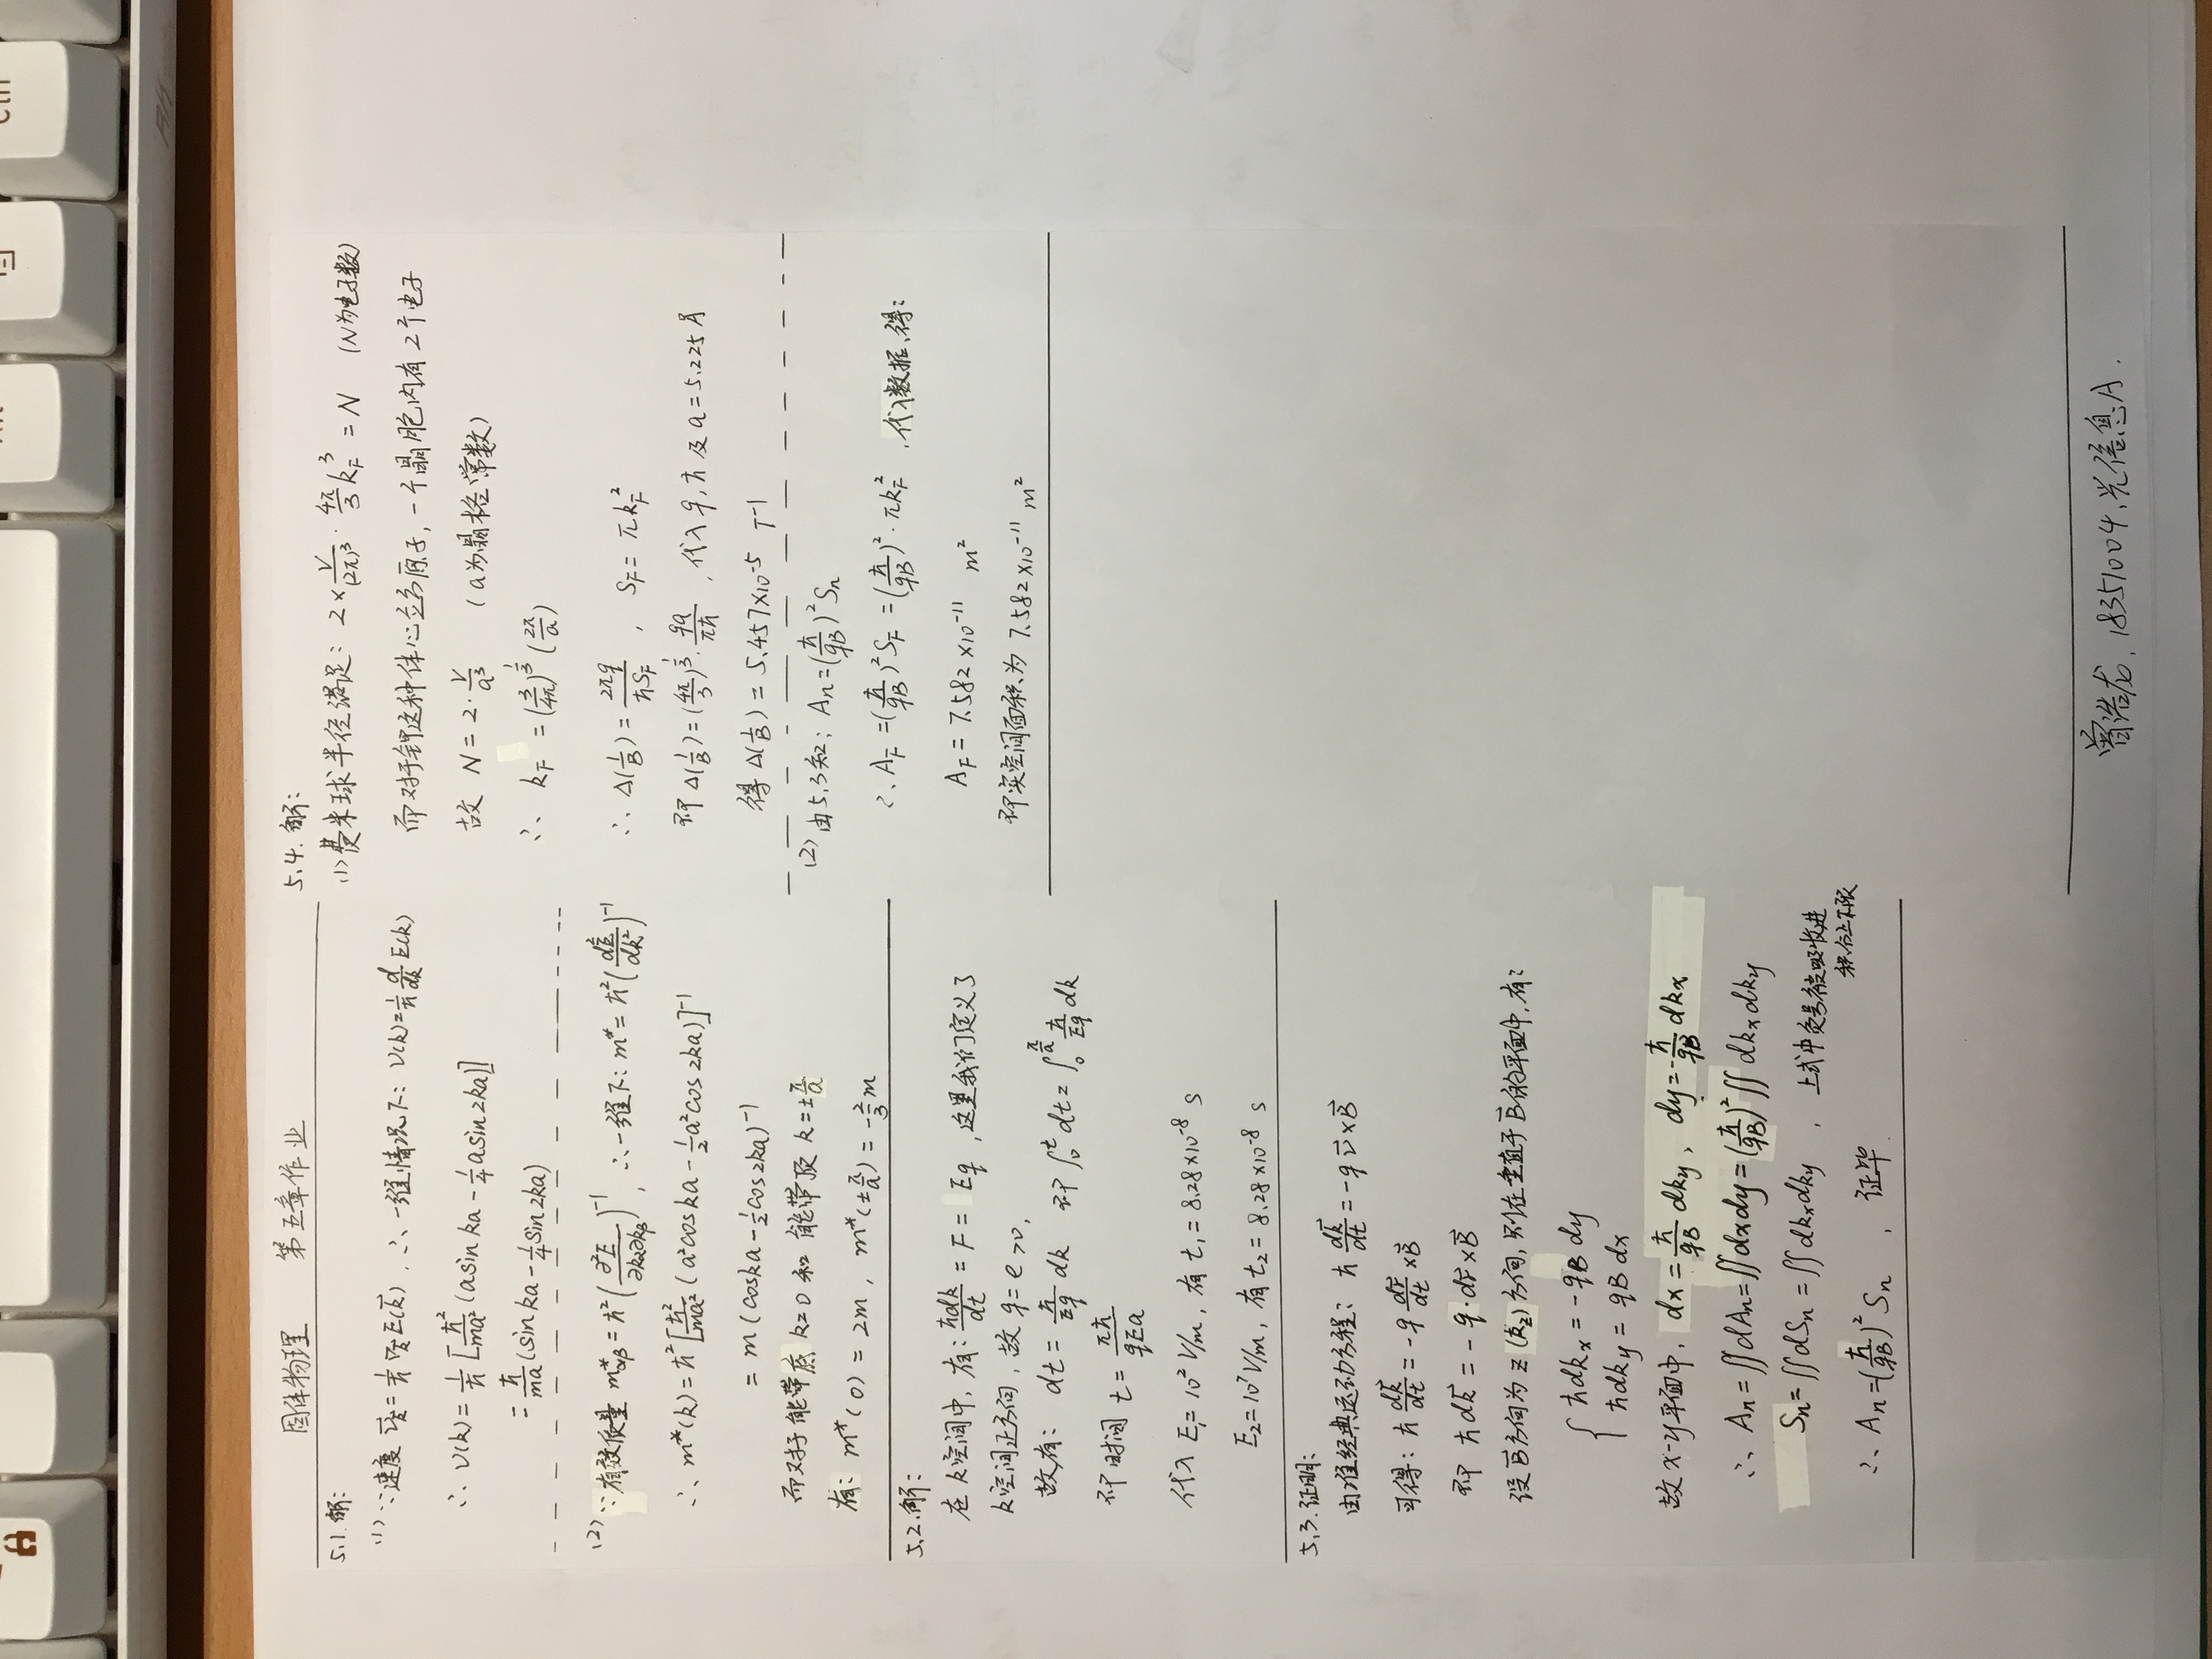 Alt
Ctrl
固体物理 第五章作业
5.1.解:
(1) ∵速度 v⃗_k⃗ = 1/ħ ∇_k⃗ E(k⃗), ∴一维情况下: v(k) = 1/ħ d/dk E(k)
∴ v(k) = 1/ħ [ħ²/ma² (a sin ka - 1/4 a sin 2ka)]
= ħ/ma (sin ka - 1/4 sin 2ka)
(2) ∵有效质量 m*_αβ = ħ² (∂²E/∂kα∂kβ)⁻¹, ∴一维下: m* = ħ² (d²E/dk²)⁻¹
∴ m*(k) = ħ² [ħ²/ma² (a² cos ka - 1/2 a² cos 2ka)]⁻¹
= m (cos ka - 1/2 cos 2ka)⁻¹
而对于能带底 k=0 和 能带顶 k=±π/a
有: m*(0) = 2m, m*(±π/a) = -2/3 m
5.2.解:
在k空间中, 有: ħdk/dt = F = Eq, 这里我们定义了
k空间正方向, 故 q = e >0,
故有: dt = ħ/Eq dk 即 ∫₀^t dt = ∫₀^(π/a) ħ/Eq dk
即时间 t = πħ/qEa
代入 E₁= 10² V/m, 有 t₁ = 8.28×10⁻⁸ s
E₂=10⁷ V/m, 有 t₂ = 8.28×10⁻⁸ s
5.3.证明:
由准经典运动方程: ħ dk⃗/dt = -q v⃗×B⃗
可得: ħ dk⃗/dt = -q dr⃗/dt ×B⃗
即 ħdk⃗ = -q·dr⃗×B⃗
设B⃗方向为 z (k_z) 方向, 则在垂直于B⃗的平面中, 有:
{ ħdkx = -qB dy
ħdky = qB dx
故 x-y平面中, dx = ħ/qB dky, dy = -ħ/qB dkx
∴ An = ∬dAn = ∬dxdy = (ħ/qB)² ∬ dkx dky
Sn = ∬dSn = ∬ dkx dky , 上式中负号被吸收进
积分上下限
∴ An = (ħ/qB)² Sn , 证毕.
5.4. 解:
(1) 费米球半径满足: 2× V/(2π)³ · 4π/3 k_F³ = N (N为电子数)
而对于钾这种体心立方原子, 一个晶胞内有2个电子
故 N = 2· V/a³ (a为晶格常数)
∴ k_F = (3/4π)^(1/3) (2π/a)
∴ Δ(1/B) = 2πq/ħS_F , S_F = πk_F²
即 Δ(1/B) = (4π/3)^(1/3) · qa/πħ , 代入 q, ħ 及 a = 5.225 Å
得 Δ(1/B) = 5.457×10⁻⁵ T⁻¹
(2) 由5.3知: An = (ħ/qB)² Sn
∴ A_F = (ħ/qB)² S_F = (ħ/qB)² · πk_F² , 代入数据, 得:
A_F = 7.582 ×10⁻¹¹ m²
即实空间面积为 7.582×10⁻¹¹ m²
曾浩龙, 18351004, 光信息A.